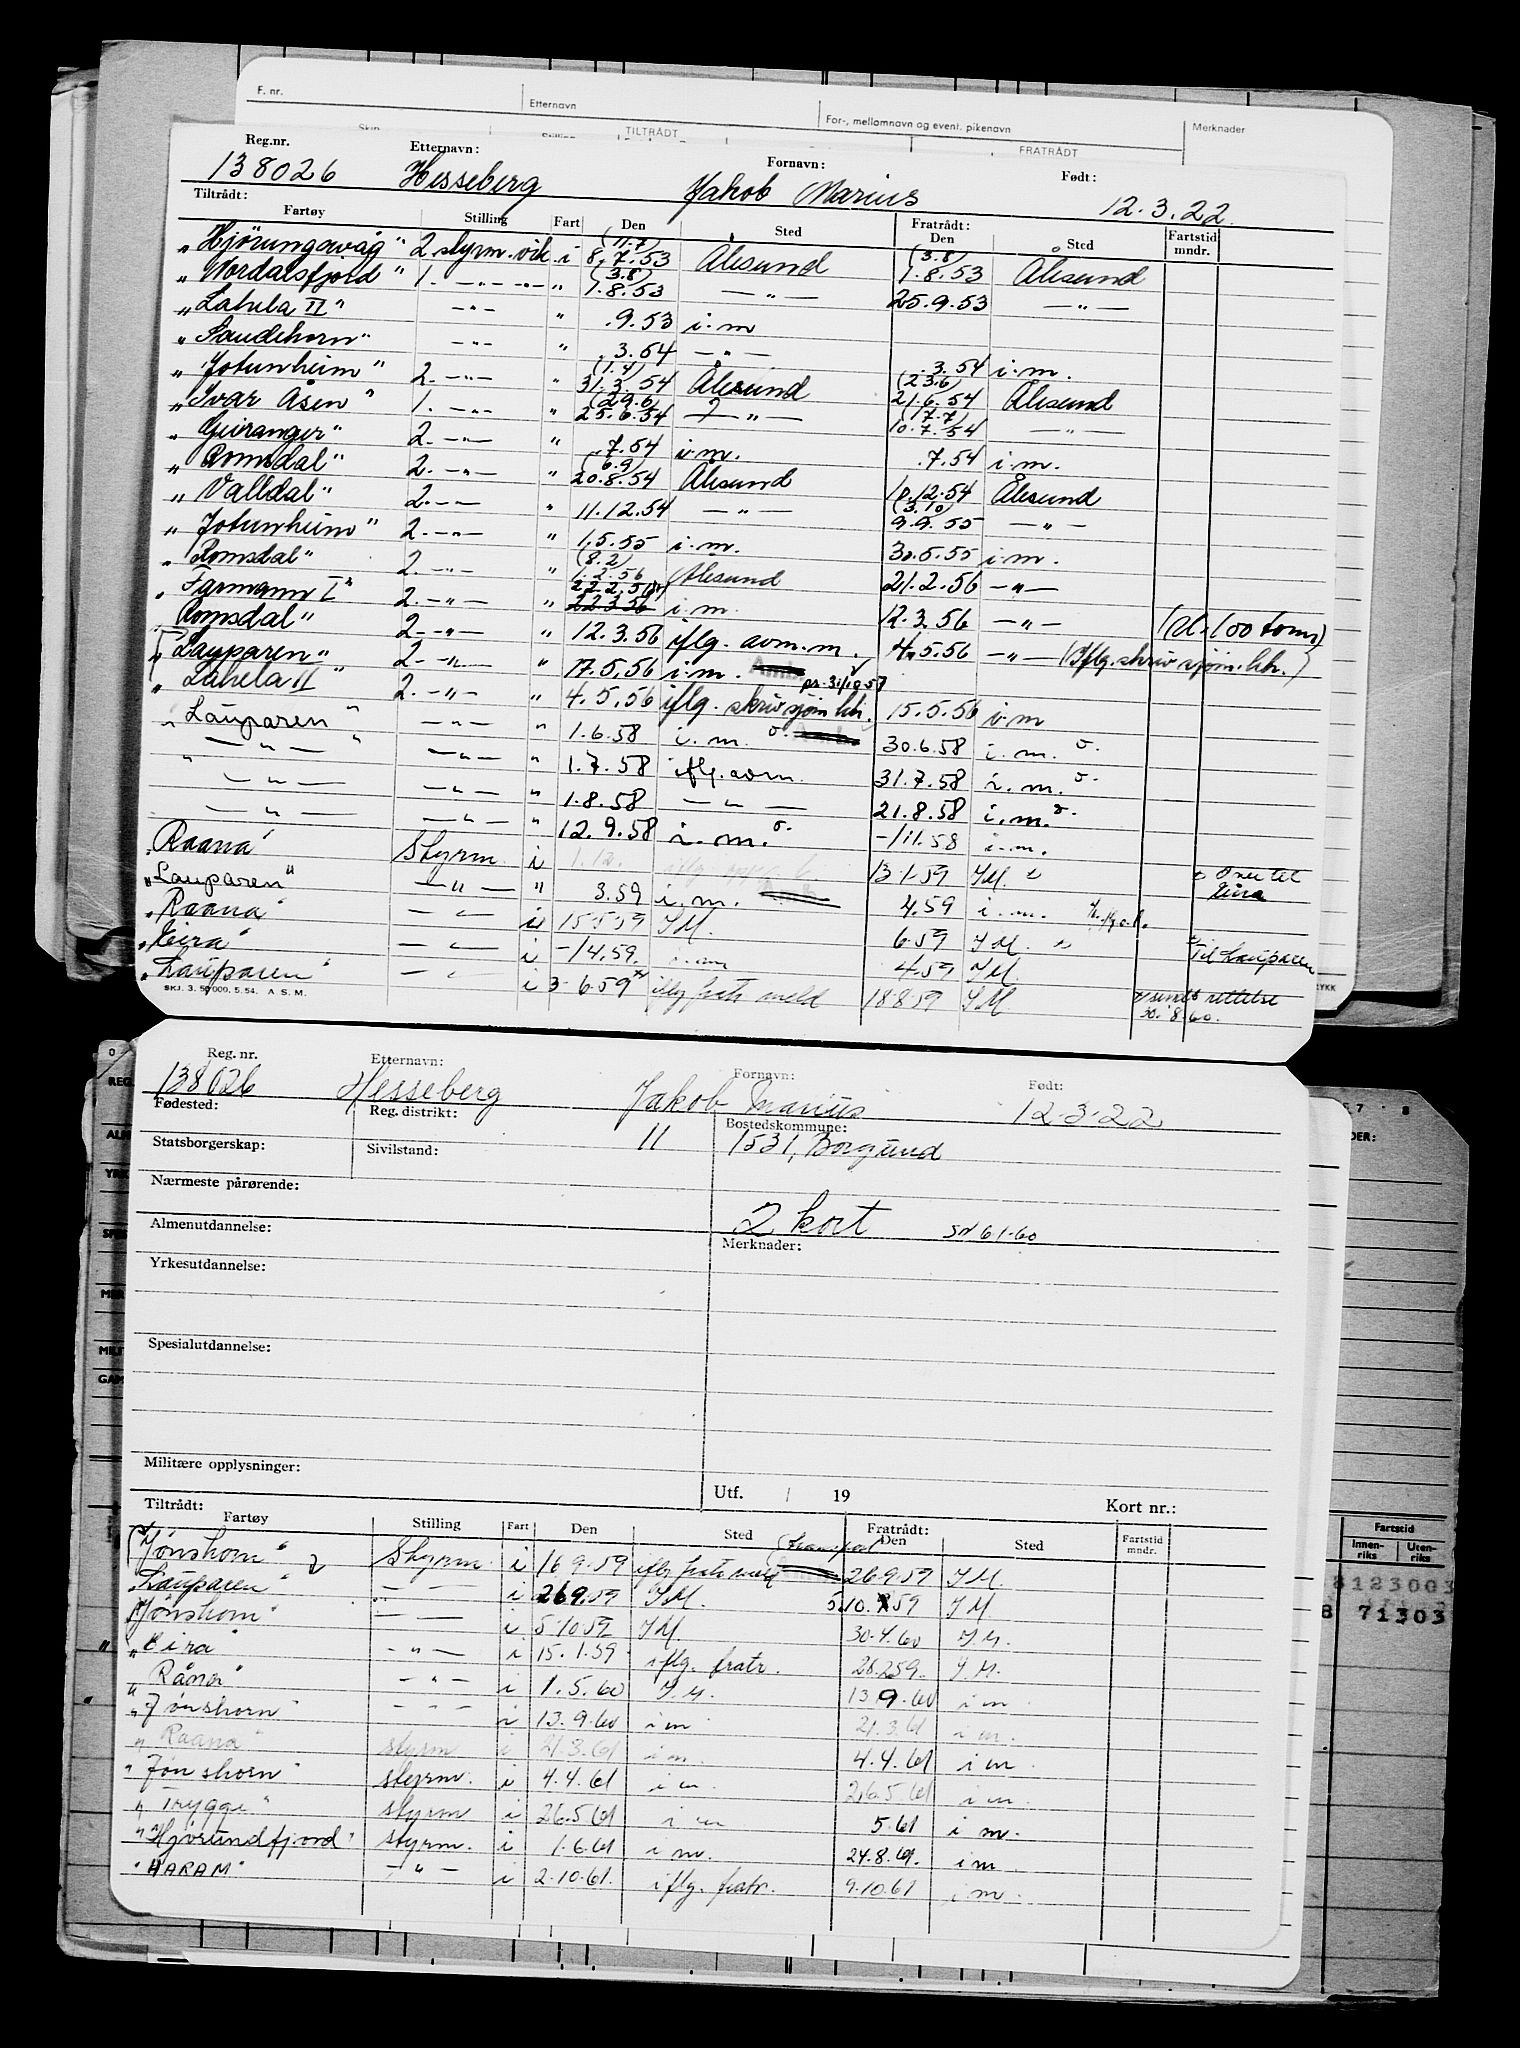 F. nr. Etternavn For-, mellomnavn og event. pikenavn Merknader
TILTRÅDT FRATRÅDT
Reg.nr. Etternavn: Fornavn: Født:
138026 Hesseberg Jakob Marius 12.3.22.
Tiltrådt: Fratrådt:
Fartøy Stilling Fart Den Sted Den Sted Fartstid mndr.
"Hjörungavåg" 2 styrm. vik. i (11.7) 8.7.53 Ålesund (3.8) 1.8.53 Ålesund
"Nordalsfjord" 1. -"- -"- " (3.8) 1.8.53 -"- 25.9.53 -"-
"Lahela II" -"- " .9.53 i.m
"Saudehorn" -"- " .3.54 -"- .3.54 i.m.
"Jotunheim" 2. -"- " (1.4) 31.3.54 Ålesund (23.6) 21.6.54 Ålesund
"Ivar Åsen" 1. -"- " (29.6) 25.6.54 -"- (17.7) 10.7.54 -"-
"Geiranger" 2. -"- " .7.54 i.m. .7.54 i.m.
"Romsdal" 2. -"- " (6.9) 20.8.54 Ålesund 10.12.54 Ålesund
"Valldal" 2. -"- " 11.12.54 -"- (3.10) 9.9.55 -"-
"Jotunheim" 2. -"- " 1.5.55 i.m. 30.5.55 i.m.
"Romsdal" 2. -"- " (8.2) 1.2.56 Ålesund 21.2.56 -"-
"Farmann I" 2. -"- " 22.2.56 22.3.56 i.m. 12.3.56 -"- (u. 100 tonn)
"Romsdal" 2. -"- " 12.3.56 iflg. avm.m. 4.5.56 -"- (Iflg. skriv sjøm.hk.)
"Lauparen" 2. -"- " 17.5.56 i.m. pr. 31/10 57
"Lahela II" 2. -"- " 4.5.56 iflg. skriv sjøm hk. 15.5.56 i.m
"Lauparen" -"- " 1.6.58 i.m. 30.6.58 i.m.
" -"- " -"- " 1.7.58 iflg. avm. 31.7.58 i.m.
-"- -"- " 1.8.58 -"- 21.8.58 i.m.
-"- -"- " 12.9.58 i.m. -/11.58 i.m.
"Raana" Styrm. i 1.12. 13 1-59 I M.
"Lauparen" -"- " 3.59 i.m. 4.59 i.m.
"Raana" -"- i 15 5 59 I M. 6 59 I M. Til Lauparen
"Eira" -"- i -/4.59. 4.59 I M.
"Lauparen" -"- i 3-6.59 iflg fratr meld 18 8 59 I M sendt rettelse 30. 8.60.
SKJ. 3. 50 000. 5. 54. A.S.M.
Reg. nr. Etternavn: Fornavn: Født:
138026 Hesseberg Jakob Marius 12-3-22
Fødested: Reg. distrikt: 11 Bostedskommune: 1531, Borgund
Statsborgerskap: Sivilstand:
Nærmeste pårørende:
2 kort
Almenutdannelse: Merknader:
Yrkesutdannelse:
Spesialutdannelse:
Militære opplysninger:
Utf. / 19 Kort nr.:
Tiltrådt: Fratrådt:
Fartøy Stilling Fart Den Sted Den Sted Fartstid mndr.
"Jönshorn" Styrm. i 16 9-59 iflg fratr meld 26 9 59 I M.
"Lauparen" -"- i 26 9.59 I M. 5 10. 59 I M
"Jönshorn" -- i 5 10 59 I M. 30-4.60 I M.
"Eira" -"- i 15.1.59 iflg. fratr. 28.2 59. I M.
"Råna" -"- i 1.5.60 I M. 13 9.60 i m
"Jønshorn" -"- i 13.9.60 i m 21.3.61 i m.
"Raana" styrm i 21.3.61 i m. 4.4.61 i m.
"Jønshorn" styrm. i 4.4.61 i m. 26.5.61 i m.
"Trygge" styrm i 26.5.61 i m 5.61 i m.
"Hjørundfjord" styrm. i 1.6.61 i m. 24.8.61. i m
"HARAM" -"- i 2.10.61. iflg. fratr. 9.10.61 i m.
Fartstid
Innen-riks Uten-riks
8123003
8 71303